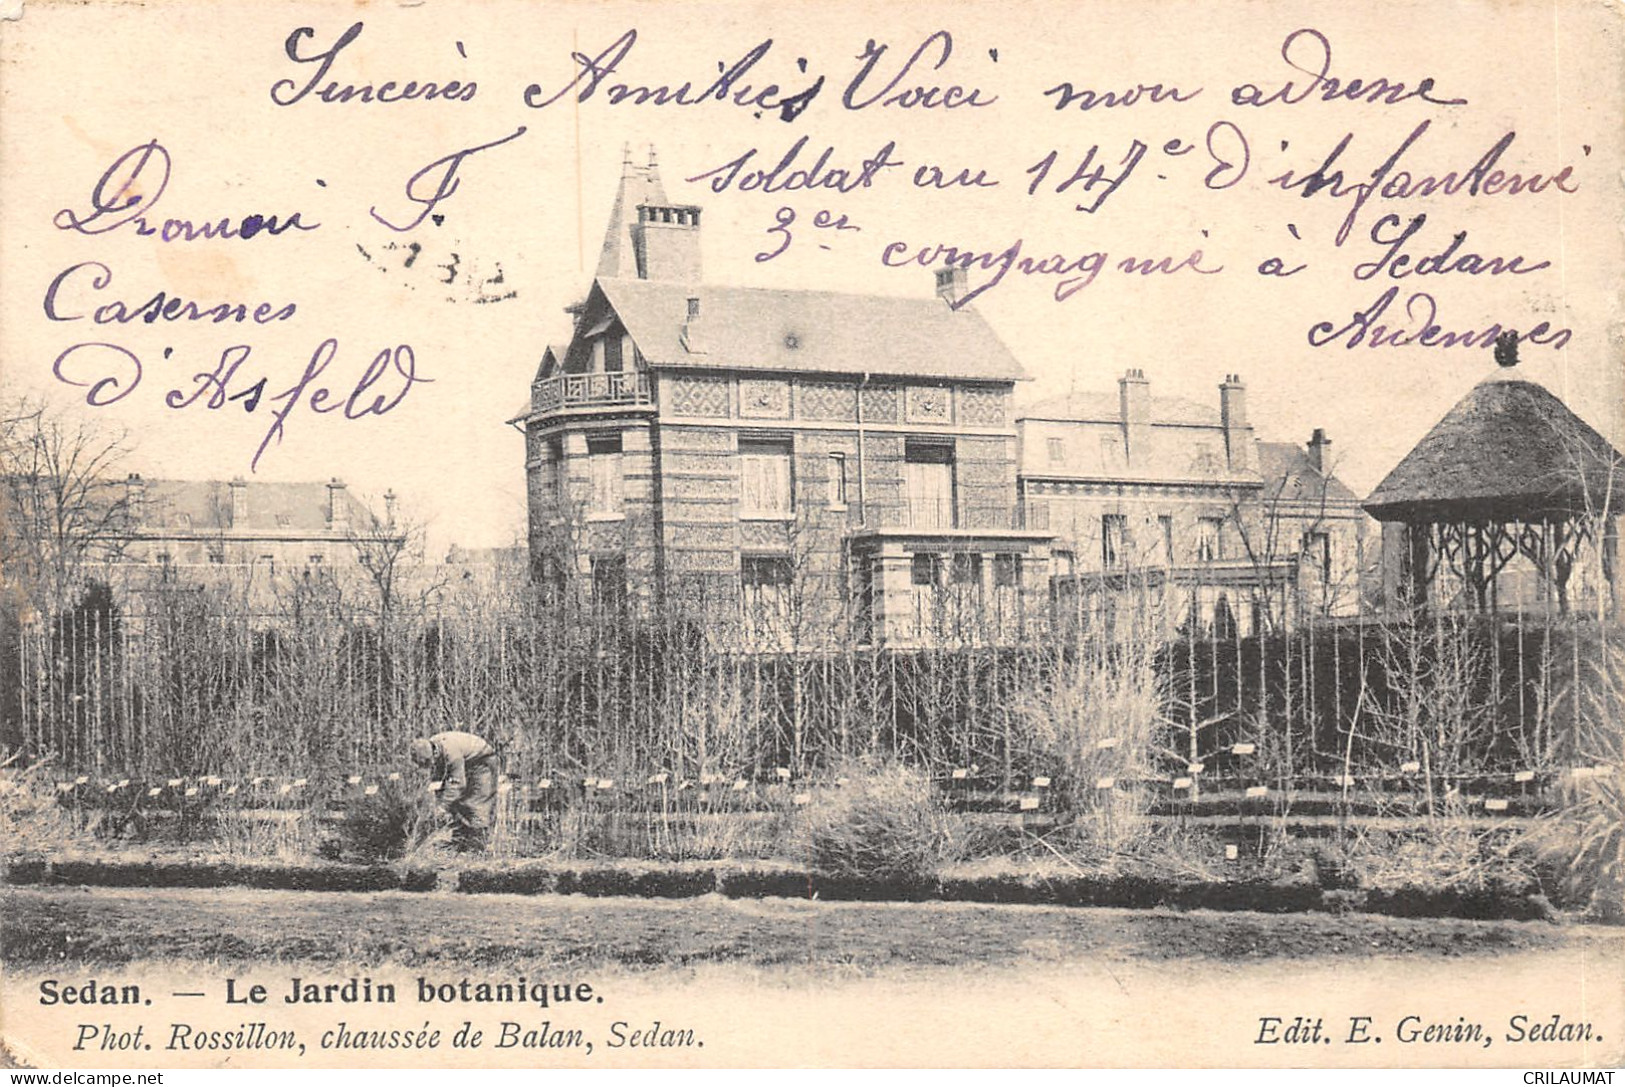 Sincerès Amitiés Voici mon adresse
soldat au 147e d'infanterie
3er compagnie à Sedan
Ardennes
F.
Casernes
d'Asfeld
Sedan. — Le Jardin botanique.
Phot. Rossillon, chaussée de Balan, Sedan.
Edit. E. Genin, Sedan.
delcampe.net
CRILAUMAT